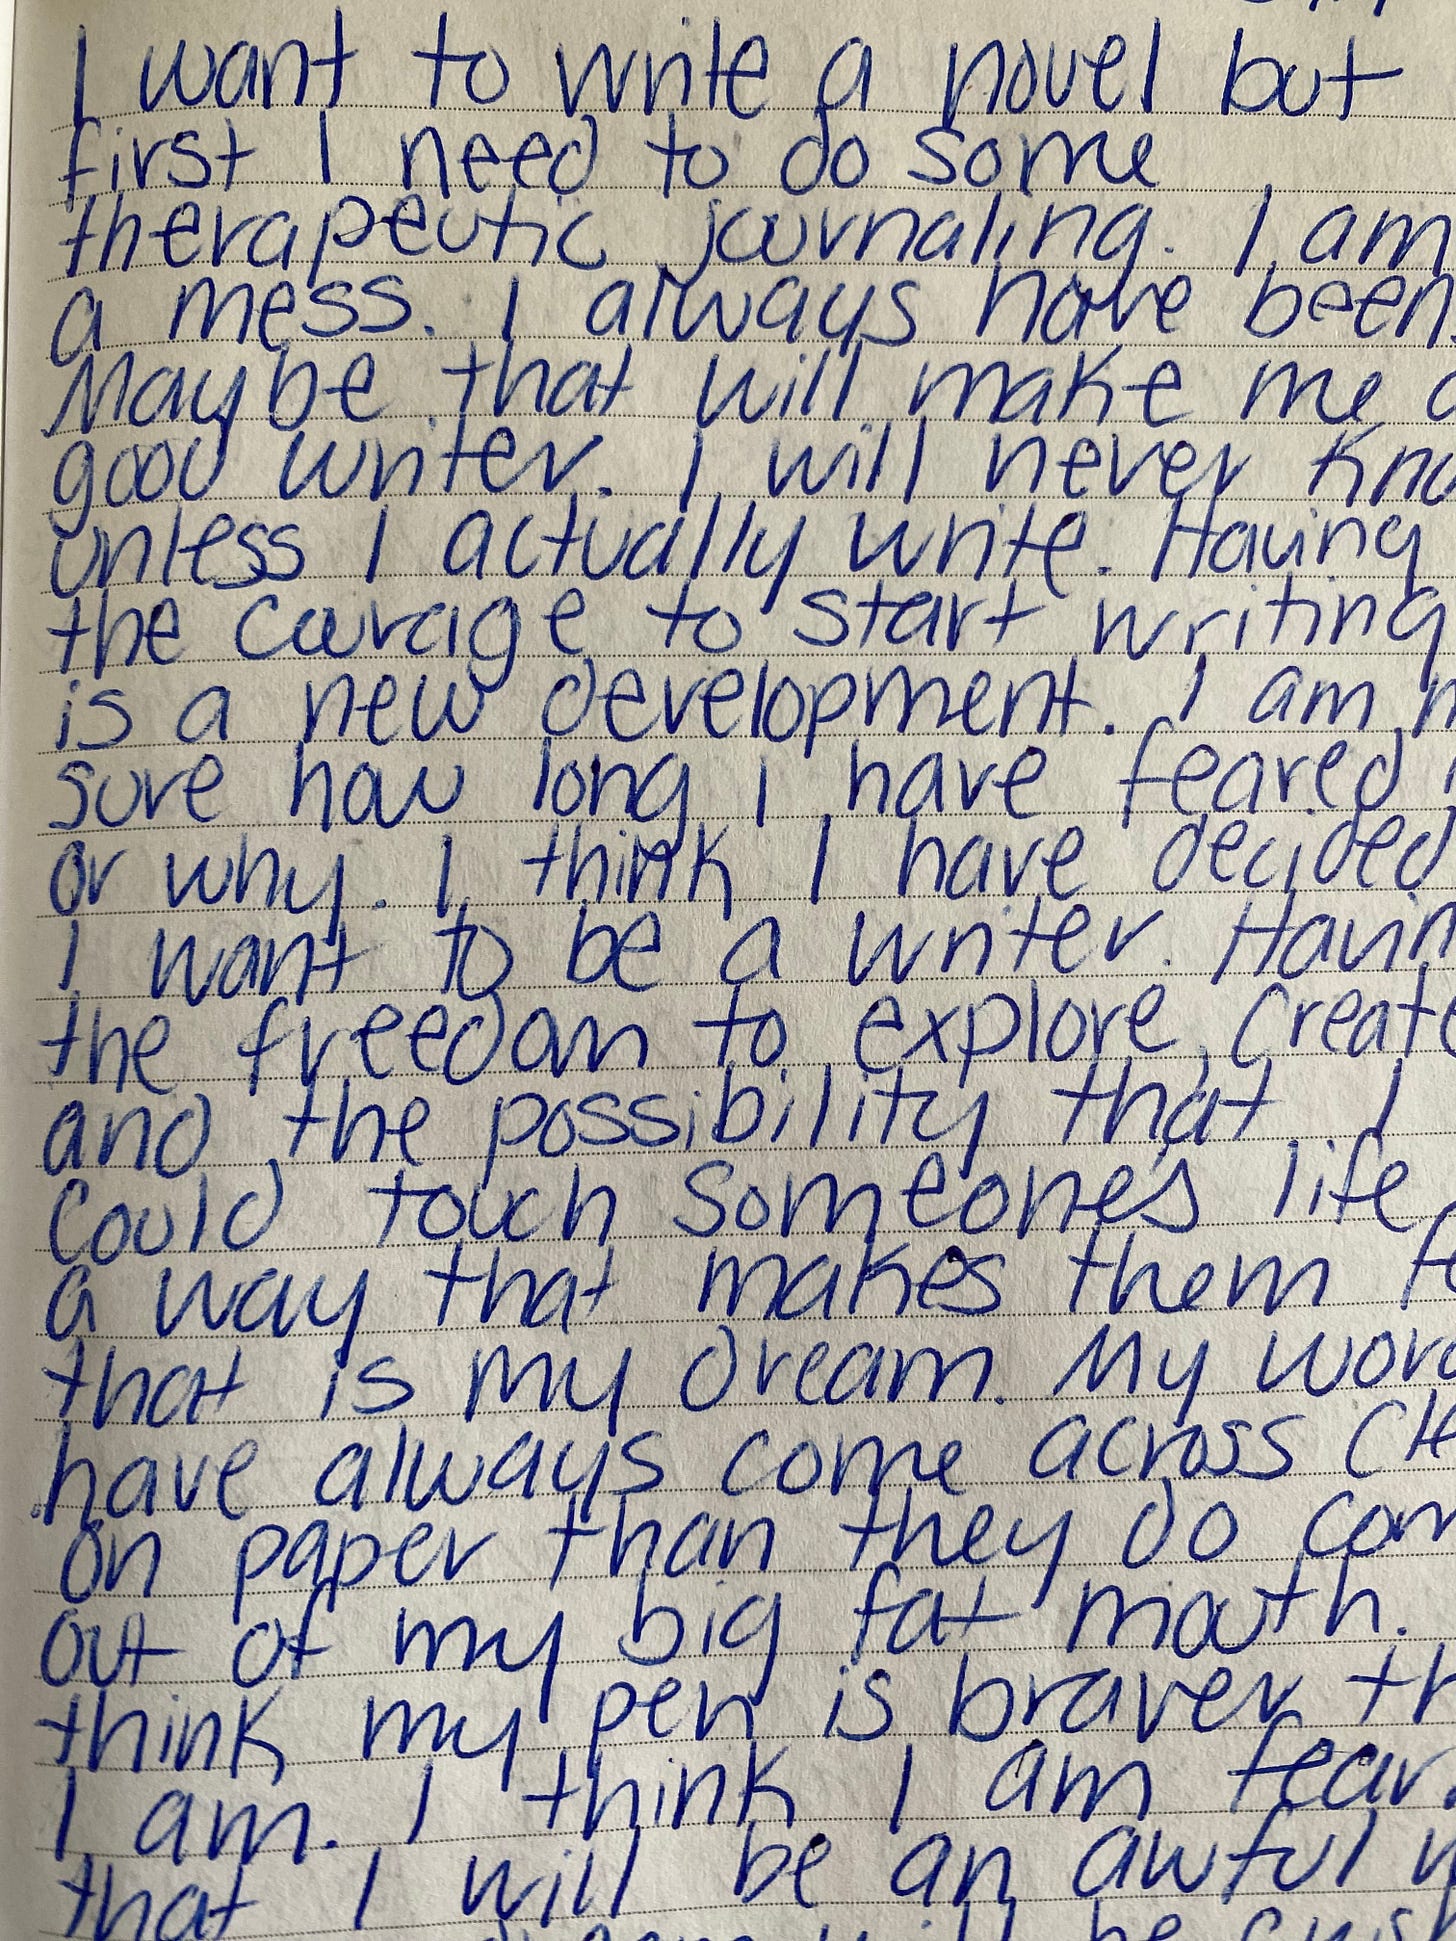 I want to write a novel but
first I need to do some
therapeutic journaling. I am
a mess. I always have been.
Maybe that will make me a
good writer. I will never
unless I actually write. Having
the courage to start writing
is a new development. I am
sure how long I have feared
or why. I think I have decided
I want to be a writer.
the freedom to explore, create
and the possibility that I
could touch someone's life
a way that makes them
that is my dream. My
have always come across
on paper than they do
out of my big fat mouth.
think my pen is braver
I am. I think I am
that I will be an awful
will be